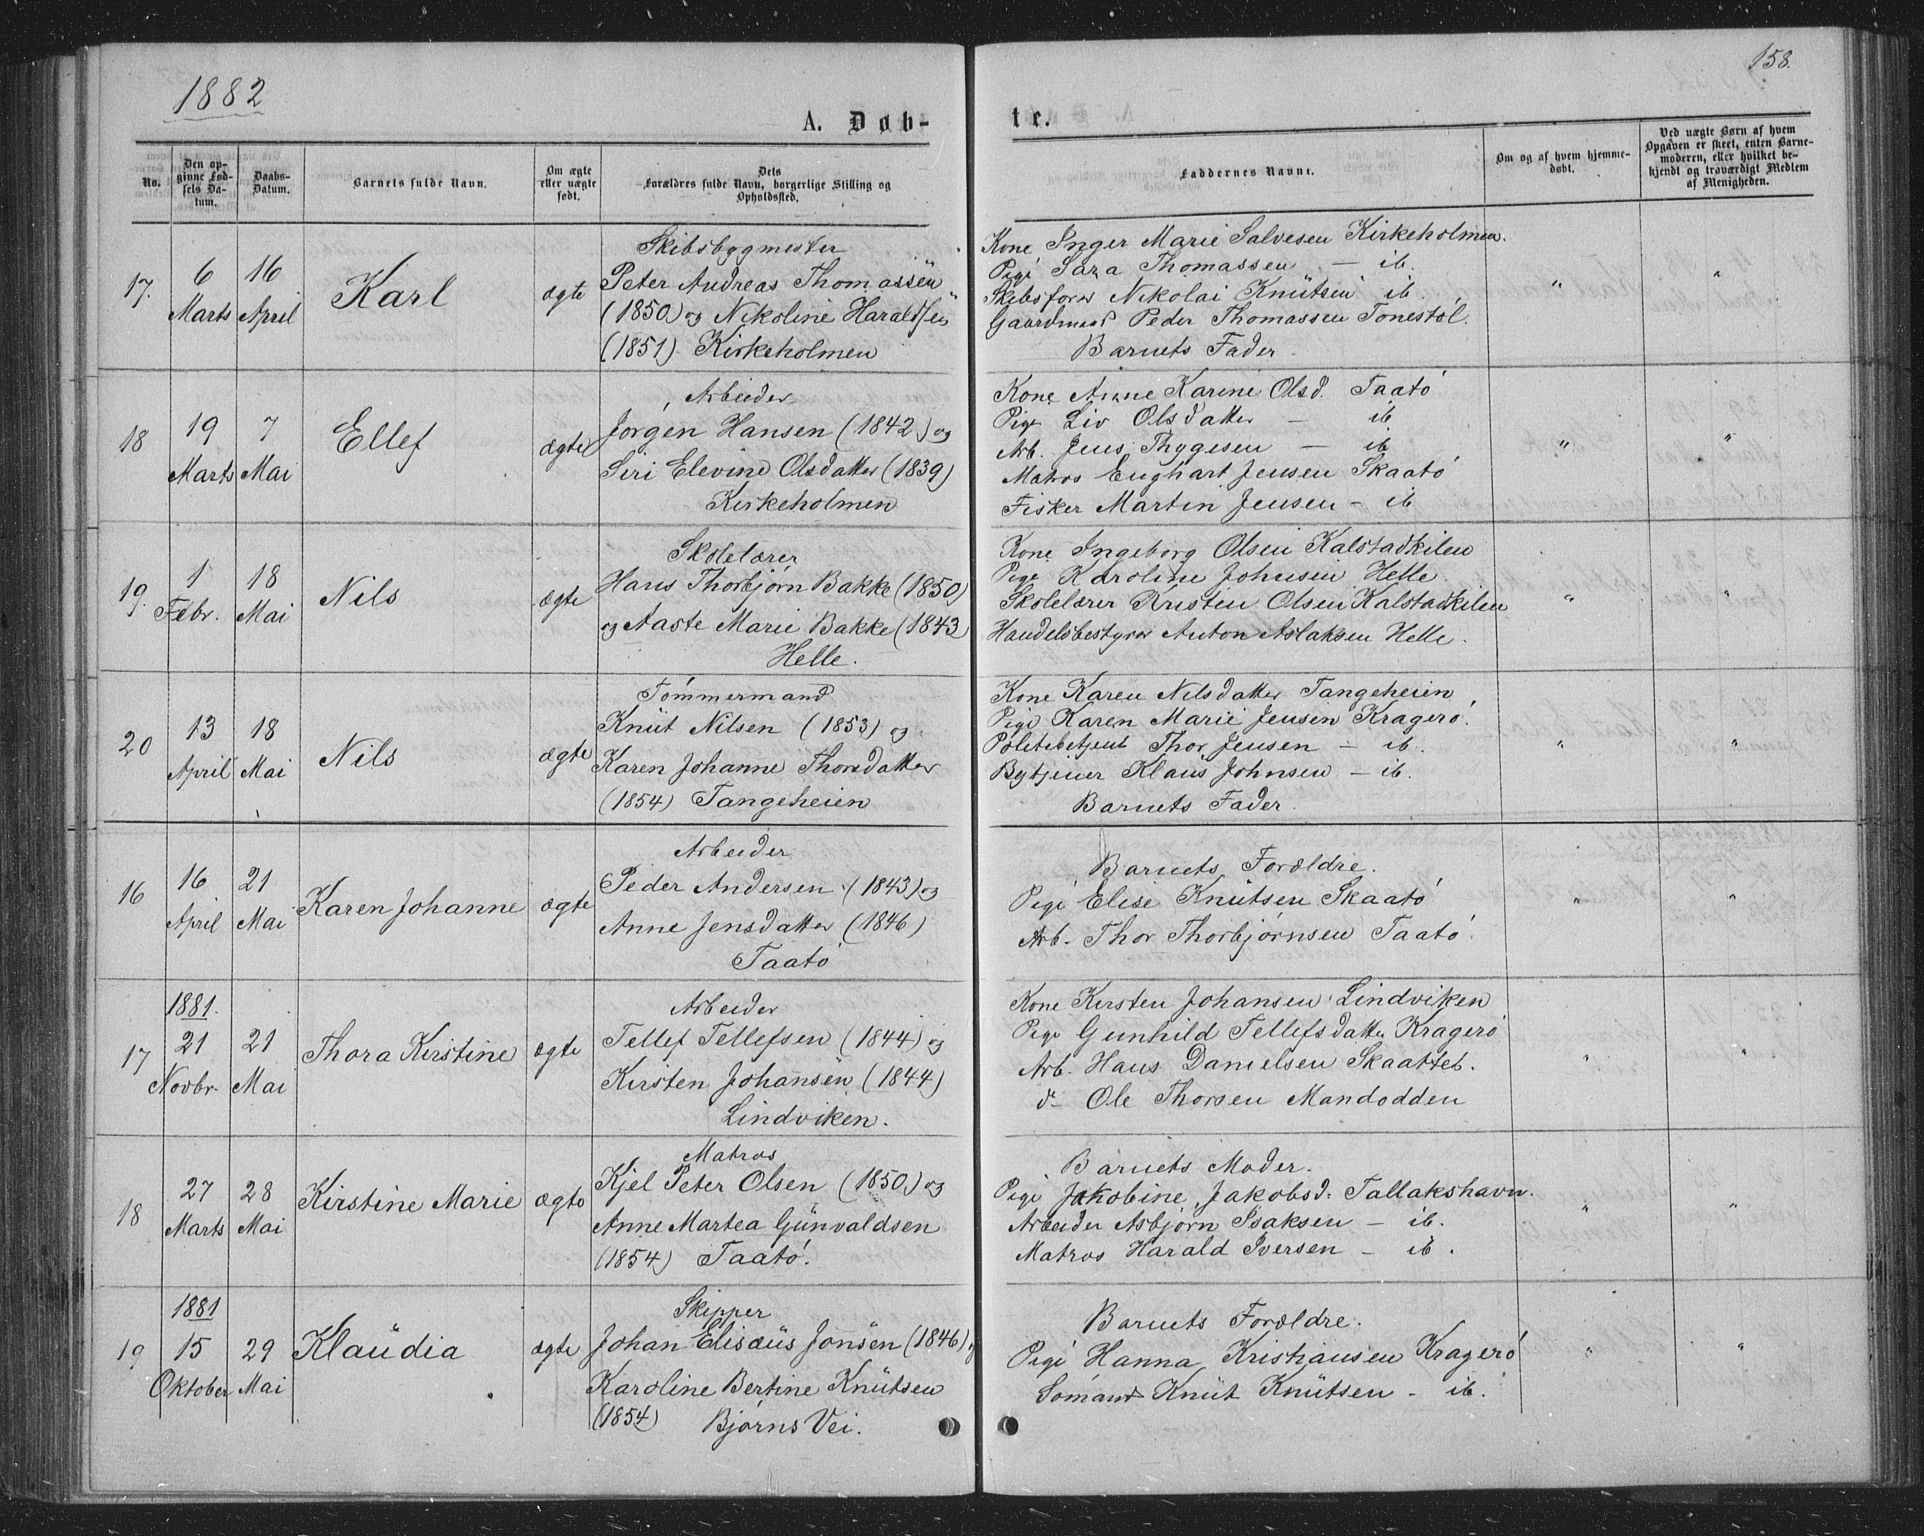 1882
158.
A. Døb-
te.
No.
Den opgivne Fødsels Datum.
Daabs-Datum.
Barnets fulde Navn.
Om ægte eller uægte født.
Dets Forældres fulde Navn, borgerlige Stilling og Opholdssted.
Faddernes Navne.
Om og af hvem hjemmedøbt.
Ved uægte Børn af hvem Opgaven er skeet, enten Barnemoderen, eller hvilket bekjendt og troværdigt Medlem af Menigheden.
17. 6 Marts 16 April Karl ægte
Skibsbygmester
Peter Andreas Thomassen
(1850) og Nikoline Haraldsen
(1851) Kirkeholmen
Kone Inger Marie Salvesen Kirkeholmen.
Pige Sara Thomassen — ib.
Skibsfører Nikolai Knütsen ib.
Gaardmand Peder Thomassen Tonestöl.
Barnets Fader.
" "
18 19 Marts 7 Mai Ellef ægte
Arbeider
Jörgen Hansen (1842) og
Siri Elevine Olsdatter (1839)
Kirkeholmen
Kone Anne Karine Olsd. Taatö
Pige Liv Olsdatter — ib
Arb. Jens Thygesen — ib
Matros Enghart Jensen Skaatö
Fisker Martin Jensen — ib
" "
19. 1 Febr. 18 Mai Nils ægte
Skolelærer
Hans Thorbjörn Bakke (1850)
og Aaste Marie Bakke (1843)
Helle.
Kone Ingeborg Olsen Kalstadkilen
Pige Karoline Johnsen Helle.
Skolelærer Kristen Olsen Kalstadkilen
Handelsbestyrer Anton Aslaksen Helle.
" "
20 13 April 18 Mai Nils ægte
Tömmermand
Knüt Nilsen (1853) og
Karen Johanne Thorsdatter
(1854) Tangeheien
Kone Karen Nilsdatter Tangeheien
Pige Karen Marie Jensen Kragerö.
Politibetjent Thor Jensen — ib.
Bytjener Klaus Johnsen — ib.
Barnets Fader.
" "
16 16 April 21 Mai Karen Johanne ægte
Arbeider
Peder Andersen (1843) og
Anne Jensdatter (1846)
Taatö
Barnets Forældre.
Pige Elise Knütsen Skaatö
Arb. Thor Thorbjörnsen Taatö.
" "
17 1881. 21 Novbr. 21 Mai Thora Kirstine ægte
Arbeider
Tellef Tellefsen (1844) og
Kirsten Johansen (1844)
Lindviken.
Kone Kirsten Johansen Lindviken
Pige Gunhild Tellefsdatter Kragerö
Arb. Hans Danielsen Skaattet.
d- Ole Thorsen Mandodden
" "
18 27 Marts 28 Mai Kirstine Marie ægte
Matros
Kjel Peter Olsen (1850) og
Anne Martea Günvaldsen
(1854) Taatö.
Barnets Moder.
Pige Jakobine Jakobsd: Tallakshavn.
Arbeider Asbjörn Isaksen — ib.
Matros Harald Iversen — ib.
" "
19 1881 15 Oktober 29 Mai Klaüdia ægte
Skipper
Johan Elisæüs Jonsen (1846) og
Karoline Bertine Knütsen
(1854) Björns Vei.
Barnets Forældre.
Pige Hanna Kristiansen Kragerö
Sömand Knüt Knütsen — ib.
" "